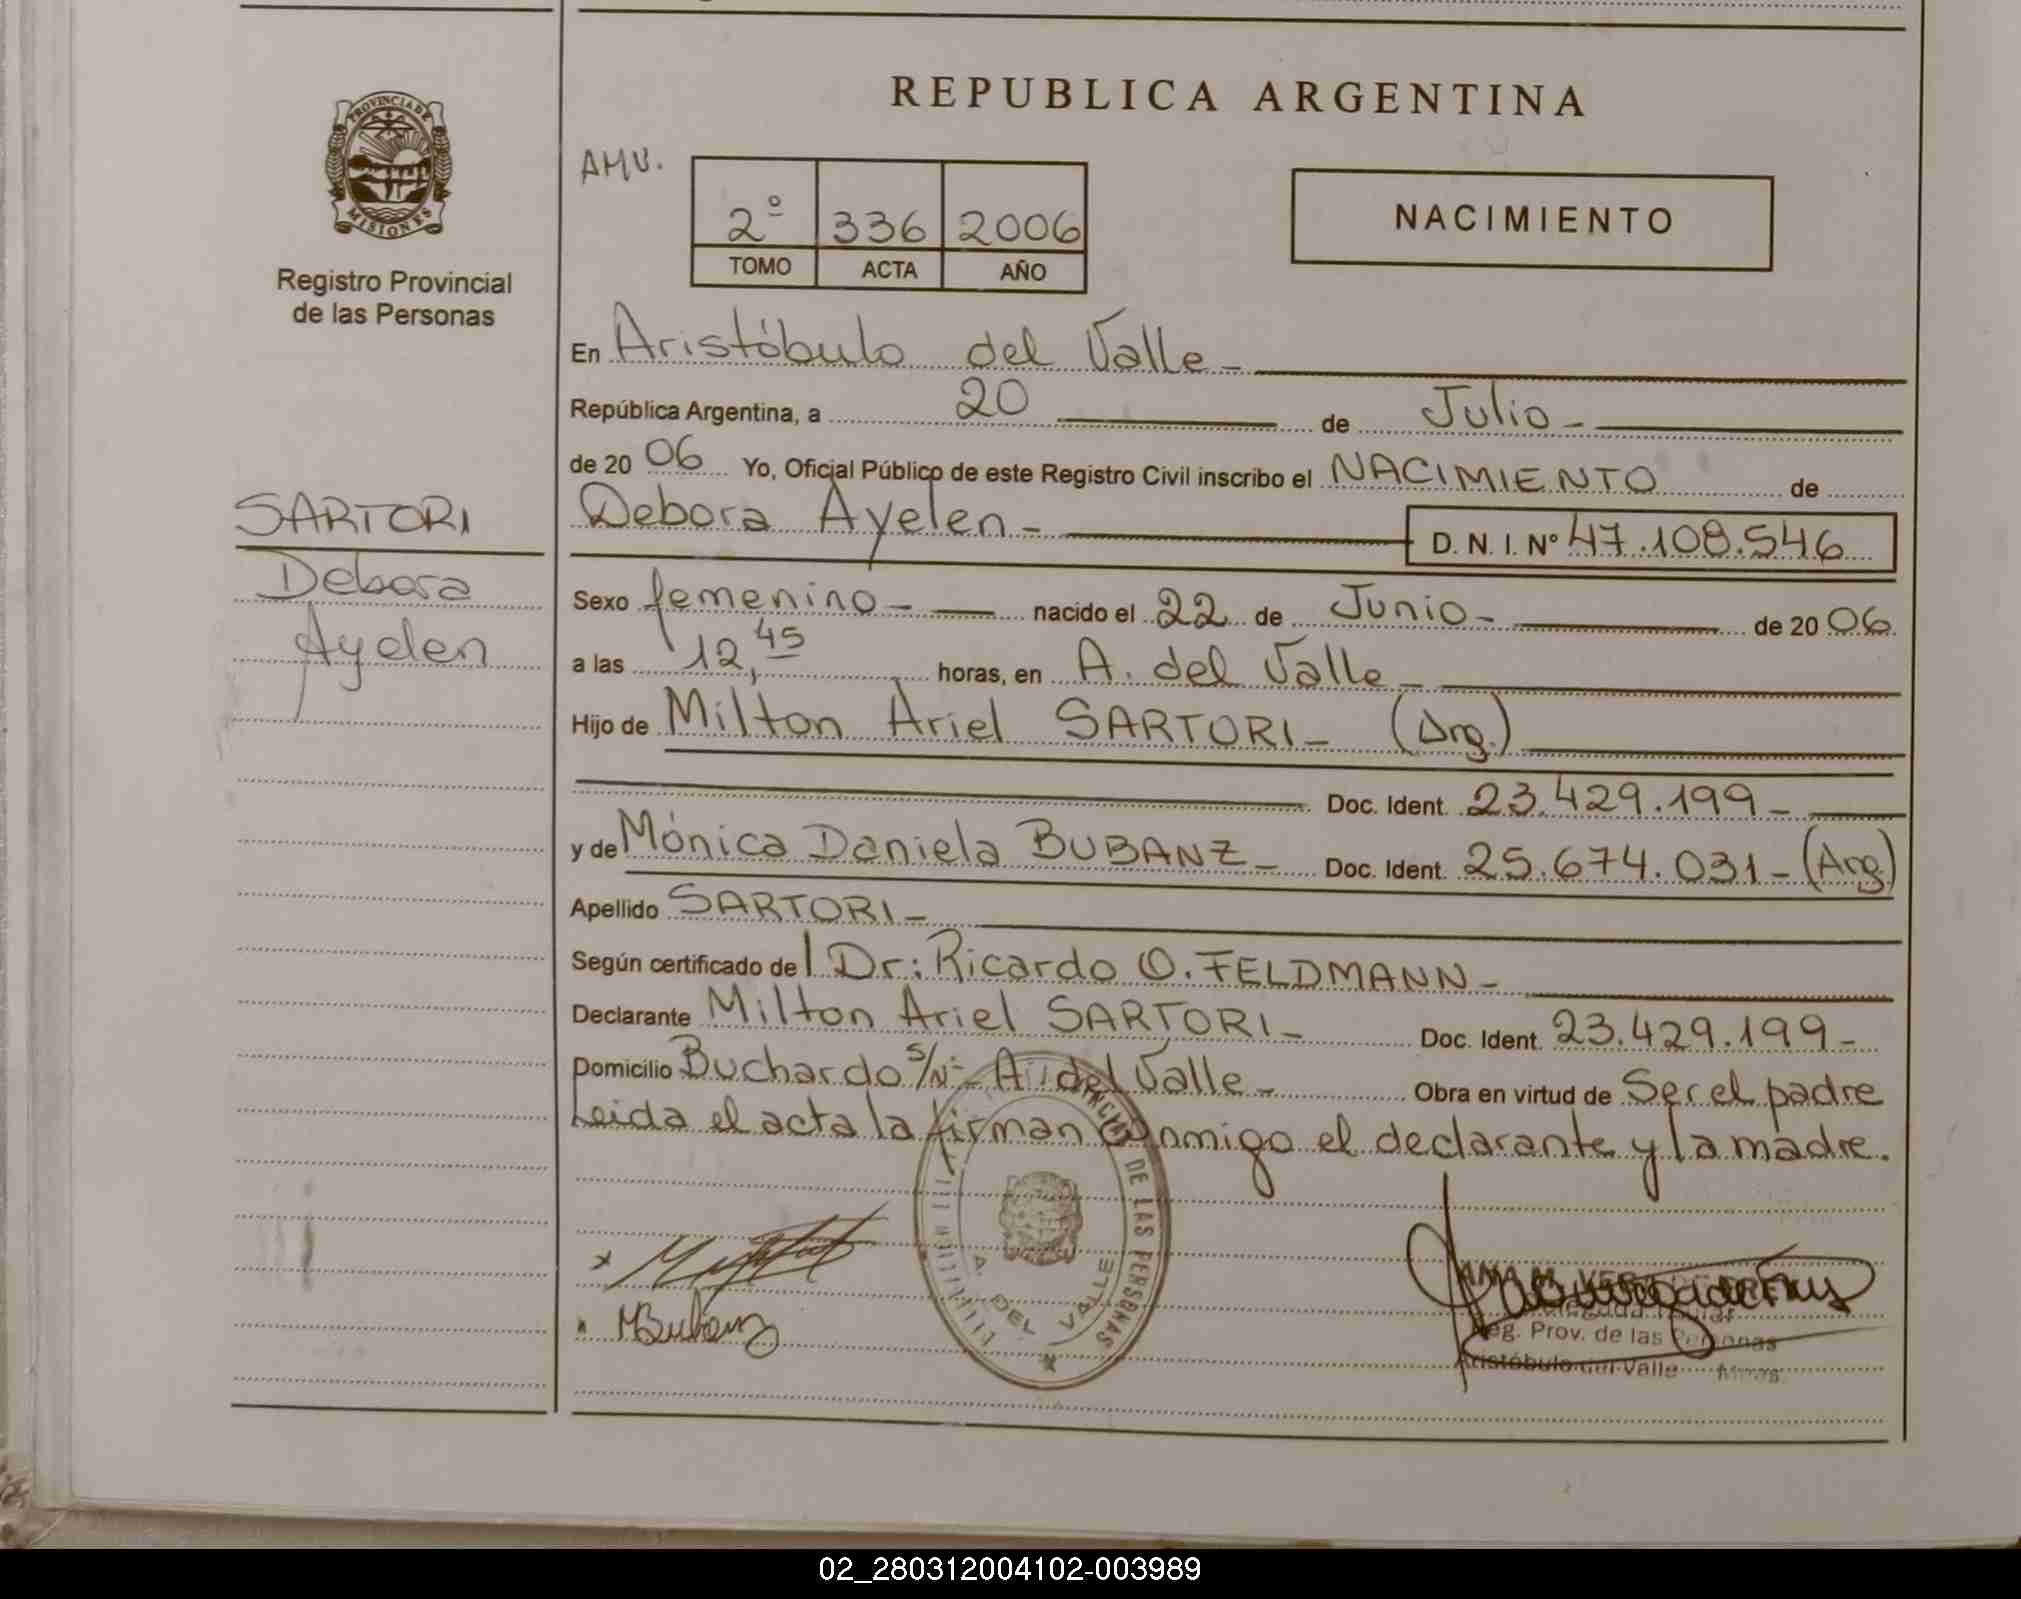 REPUBLICA ARGENTINA
PROVINCIA DE
MISIONES
Registro Provincial
de las Personas
AMU.
2º 336 2006
TOMO ACTA AÑO
NACIMIENTO
En Aristóbulo del Valle -
República Argentina, a 20 de Julio -
de 20 06 Yo, Oficial Público de este Registro Civil inscribo el NACIMIENTO de
Debora Ayelen - D. N. I. Nº 47.108.546
SARTORI
Debora
Ayelen
Sexo femenino - nacido el 22 de Junio - de 20 06
a las 12,45 horas, en A. del Valle -
Hijo de Milton Ariel SARTORI - (Arg.)
Doc. Ident. 23.429.199 -
y de Mónica Daniela BUBANZ - Doc. Ident. 25.674.031 - (Arg)
Apellido SARTORI -
Según certificado de l Dr: Ricardo O. FELDMANN -
Declarante Milton Ariel SARTORI - Doc. Ident. 23.429.199 -
Domicilio Buchardo s/Nº - A. del Valle - Obra en virtud de Ser el padre
Leida el acta la firman conmigo el declarante y la madre.
DE LAS PERSONAS
A. DEL VALLE
MBubanz
Reg. Prov. de las Personas
Aristóbulo del Valle Mnes.
02_280312004102-003989